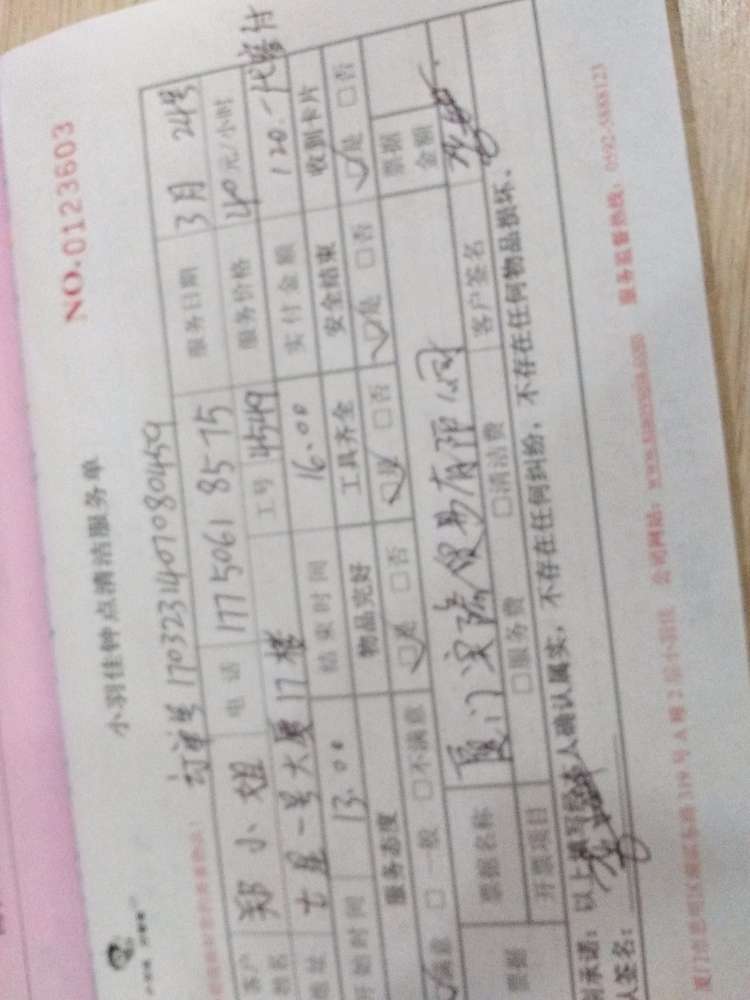 NO.0123603
小羽佳钟点清洁服务单
订单号 1703231407080459
客户姓名 郑小姐 电话 177 5061 8575 服务日期 3月24号
地址 七星一号大厦17楼 工号 4549 服务价格 40元/小时
开始时间 13.00 结束时间 16.00 实付金额 120.
服务态度 物品完好 工具齐全 安全结束 收到卡片
满意 □一般 □不满意 □是 □否 □是 □否 □是 □否 □是 □否
票据 票据名称 厦门 贸易有限公司 票据金额
开票项目 □服务费 □清洁费 客户签名
承诺:以上填写经本人确认属实,不存在任何纠纷,不存在任何物品损坏。
人签名:
公司网站: 服务监督热线:0592-5888123